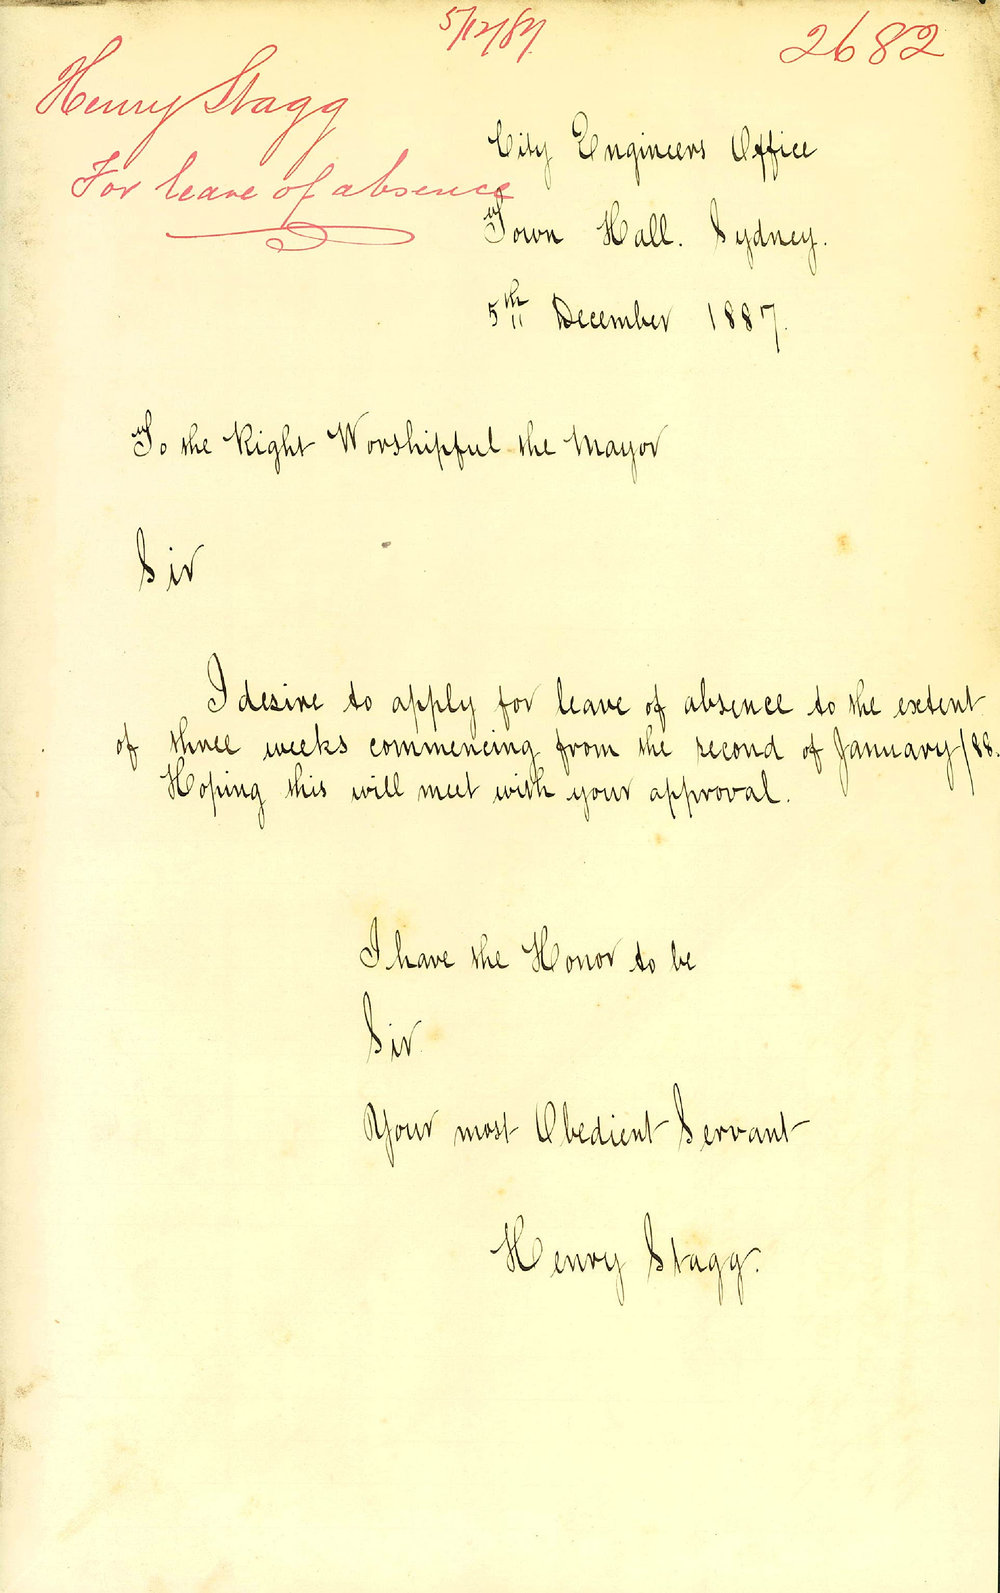 5/12/87
2682
Henry Stagg
For leave of absence
City Engineers Office
Town Hall. Sydney.
5th December 1887.
To the Right Worshipful the Mayor
Sir
I desire to apply for leave of absence to the extent
of three weeks commencing from the second of January/88.
Hoping this will meet with your approval.
I have the Honor to be
Sir
Your most Obedient Servant
Henry Stagg.